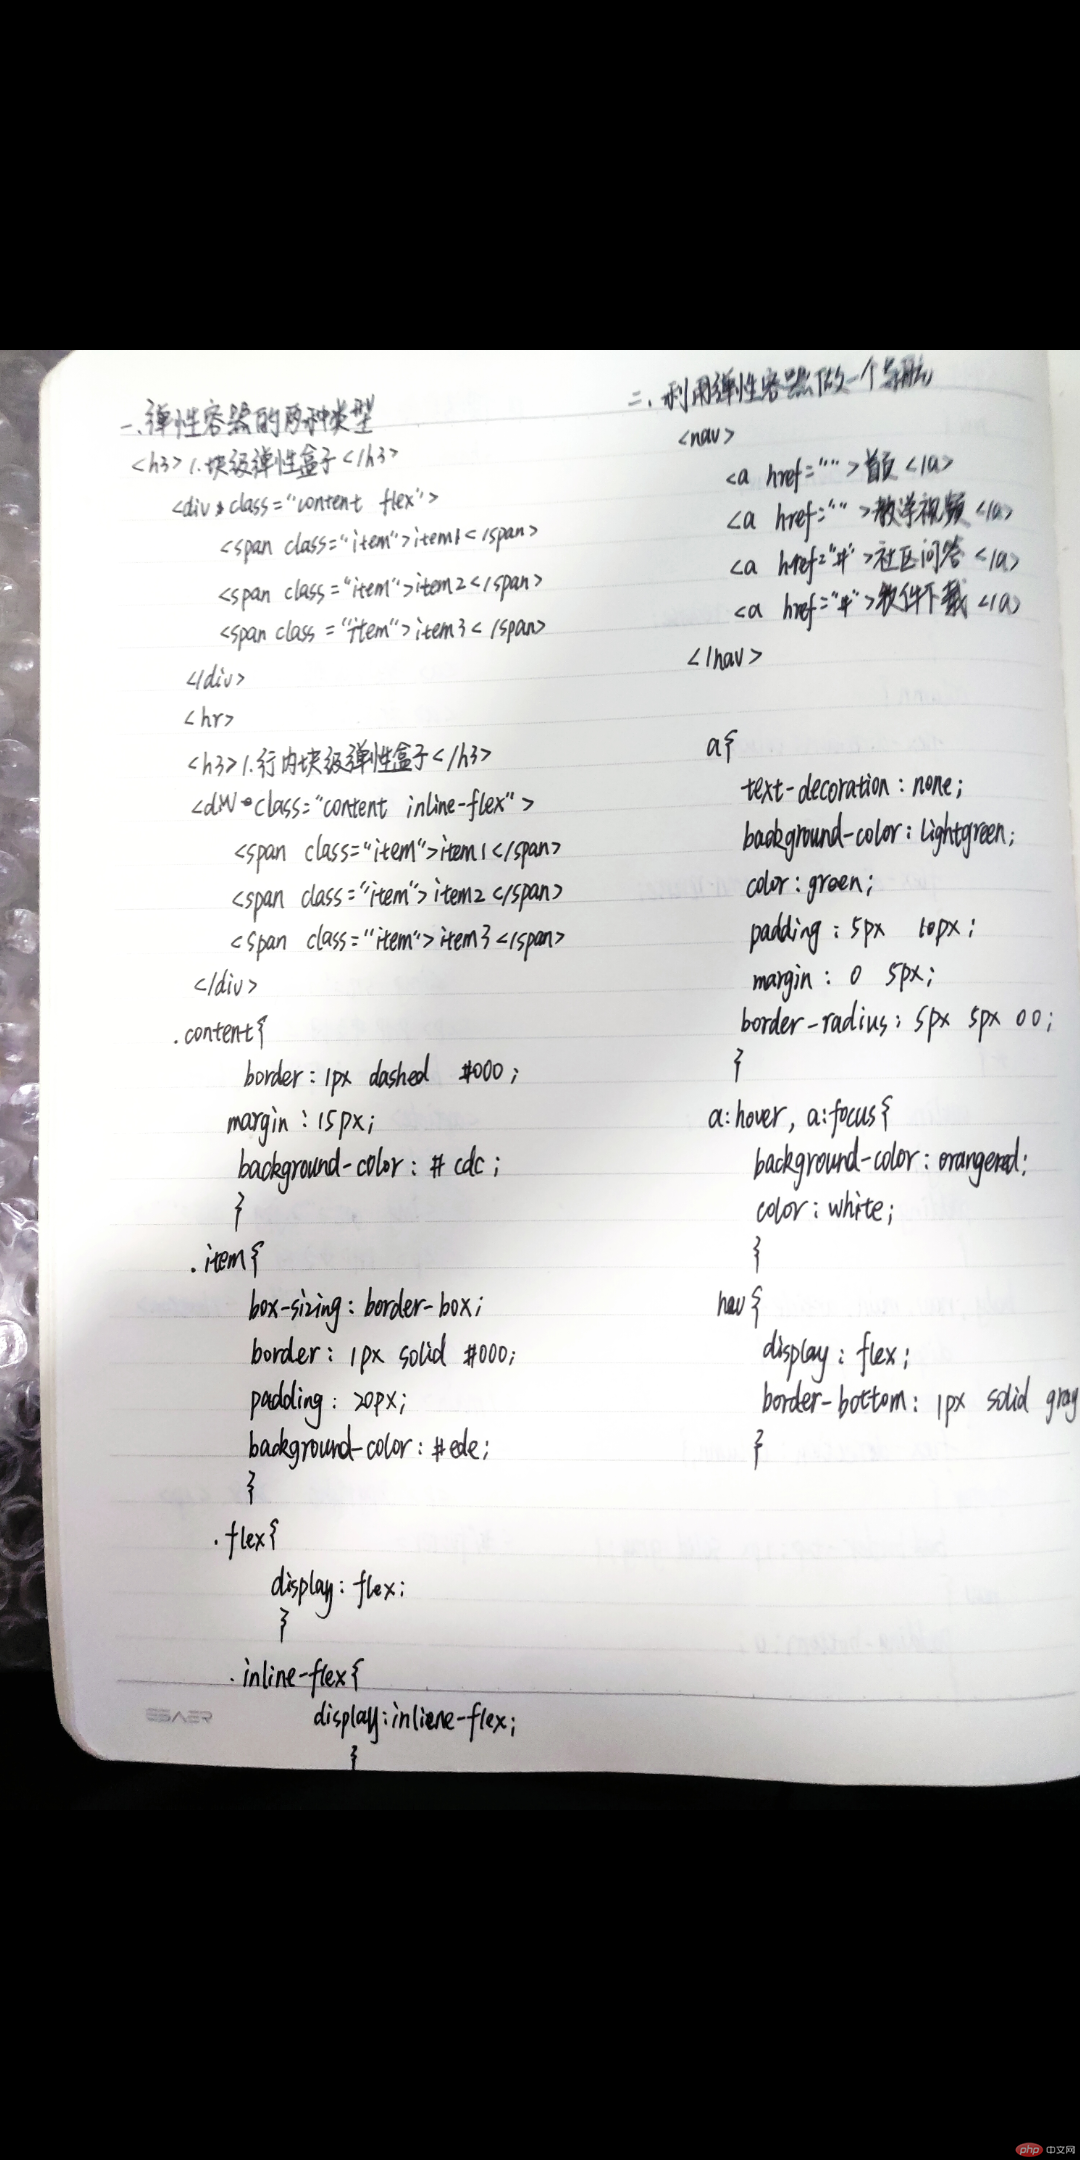 一、弹性容器的两种类型
<h3>1.块级弹性盒子</h3>
<div class="content flex">
<span class="item">item1</span>
<span class="item">item2</span>
<span class="item">item3</span>
</div>
<hr>
<h3>1.行内块级弹性盒子</h3>
<div class="content inline-flex">
<span class="item">item1</span>
<span class="item">item2</span>
<span class="item">item3</span>
</div>
.content{
border: 1px dashed #000;
margin: 15px;
background-color: #cdc;
}
.item{
box-sizing: border-box;
border: 1px solid #000;
padding: 20px;
background-color: #ede;
}
.flex{
display: flex;
}
.inline-flex{
display: inliene-flex;
}
EBAER
二、利用弹性容器做一个导航
<nav>
<a href="">首页</a>
<a href="">教学视频</a>
<a href="#">社区问答</a>
<a href="#">软件下载</a>
</nav>
a{
text-decoration: none;
background-color: lightgreen;
color: green;
padding: 5px 10px;
margin: 0 5px;
border-radius: 5px 5px 0 0;
}
a:hover, a:focus{
background-color: orangered;
color: white;
}
nav{
display: flex;
border-bottom: 1px solid gray
}
php 中文网